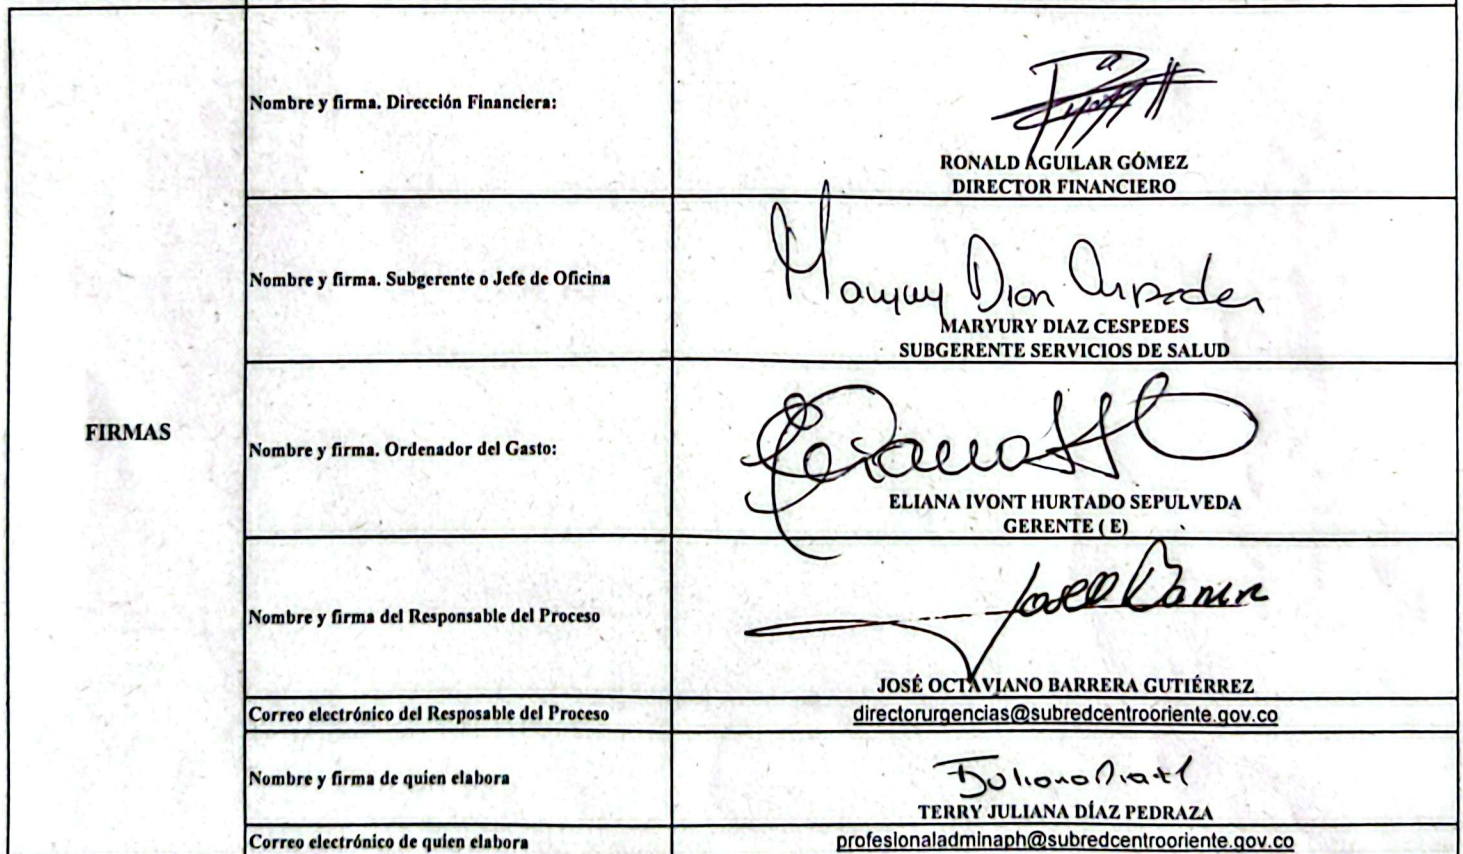 FIRMAS
Nombre y firma. Dirección Financiera:
RONALD AGUILAR GÓMEZ
DIRECTOR FINANCIERO
Nombre y firma. Subgerente o Jefe de Oficina
Maryury Diaz Cespedes
MARYURY DIAZ CESPEDES
SUBGERENTE SERVICIOS DE SALUD
Nombre y firma. Ordenador del Gasto:
ELIANA IVONT HURTADO SEPULVEDA
GERENTE ( E)
Nombre y firma del Responsable del Proceso
JOSÉ OCTAVIANO BARRERA GUTIÉRREZ
Correo electrónico del Resposable del Proceso
directorurgencias@subredcentrooriente.gov.co
Nombre y firma de quien elabora
TERRY JULIANA DÍAZ PEDRAZA
Correo electrónico de quien elabora
profesionaladminaph@subredcentrooriente.gov.co